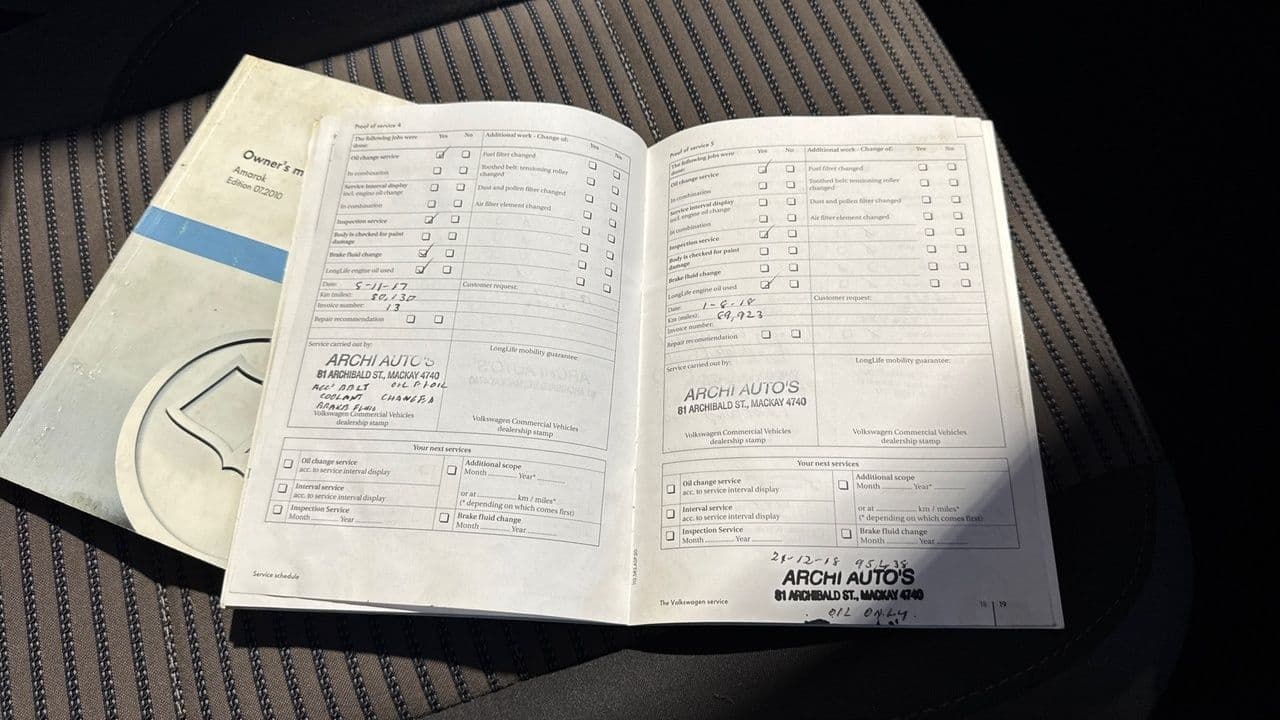 Owner's m
Amarok
Edition 07.2010
Proof of service 4
The following jobs were done: Yes No Additional work - Change of: Yes No
Oil change service Fuel filter changed
In combination Toothed belt: tensioning roller changed
Service interval display incl. engine oil change Dust and pollen filter changed
In combination Air filter element changed
Inspection service
Body is checked for paint damage
Brake fluid change
LongLife engine oil used
Date: 5-11-17 Customer request:
Km (miles): 80,130
Invoice number: 13
Repair recommendation
Service carried out by: LongLife mobility guarantee:
ARCHI AUTO'S
81 ARCHIBALD ST., MACKAY 4740
BELT OIL F OIL
COOLANT CHANGED
BRAKE FLUID
Volkswagen Commercial Vehicles dealership stamp
Volkswagen Commercial Vehicles dealership stamp
Your next services
Oil change service
acc. to service interval display
Interval service
acc. to service interval display
Inspection Service
Month Year
Additional scope
Month Year*
or at km / miles*
(* depending on which comes first)
Brake fluid change
Month Year
Service schedule
Proof of service 5
The following jobs were done: Yes No Additional work - Change of: Yes No
Oil change service Fuel filter changed
In combination Toothed belt: tensioning roller changed
Service interval display incl. engine oil change Dust and pollen filter changed
In combination Air filter element changed
Inspection service
Body is checked for paint damage
Brake fluid change
LongLife engine oil used
Date: 1-6-18 Customer request:
Km (miles): 89,923
Invoice number:
Repair recommendation
Service carried out by: LongLife mobility guarantee:
ARCHI AUTO'S
81 ARCHIBALD ST., MACKAY 4740
Volkswagen Commercial Vehicles dealership stamp
Volkswagen Commercial Vehicles dealership stamp
Your next services
Oil change service
acc. to service interval display
Interval service
acc. to service interval display
Inspection Service
Month Year
Additional scope
Month Year*
or at km / miles*
(* depending on which comes first)
Brake fluid change
Month Year
21-12-18 95,438
ARCHI AUTO'S
81 ARCHIBALD ST., MACKAY 4740
OIL ONLY.
The Volkswagen service
18 | 19